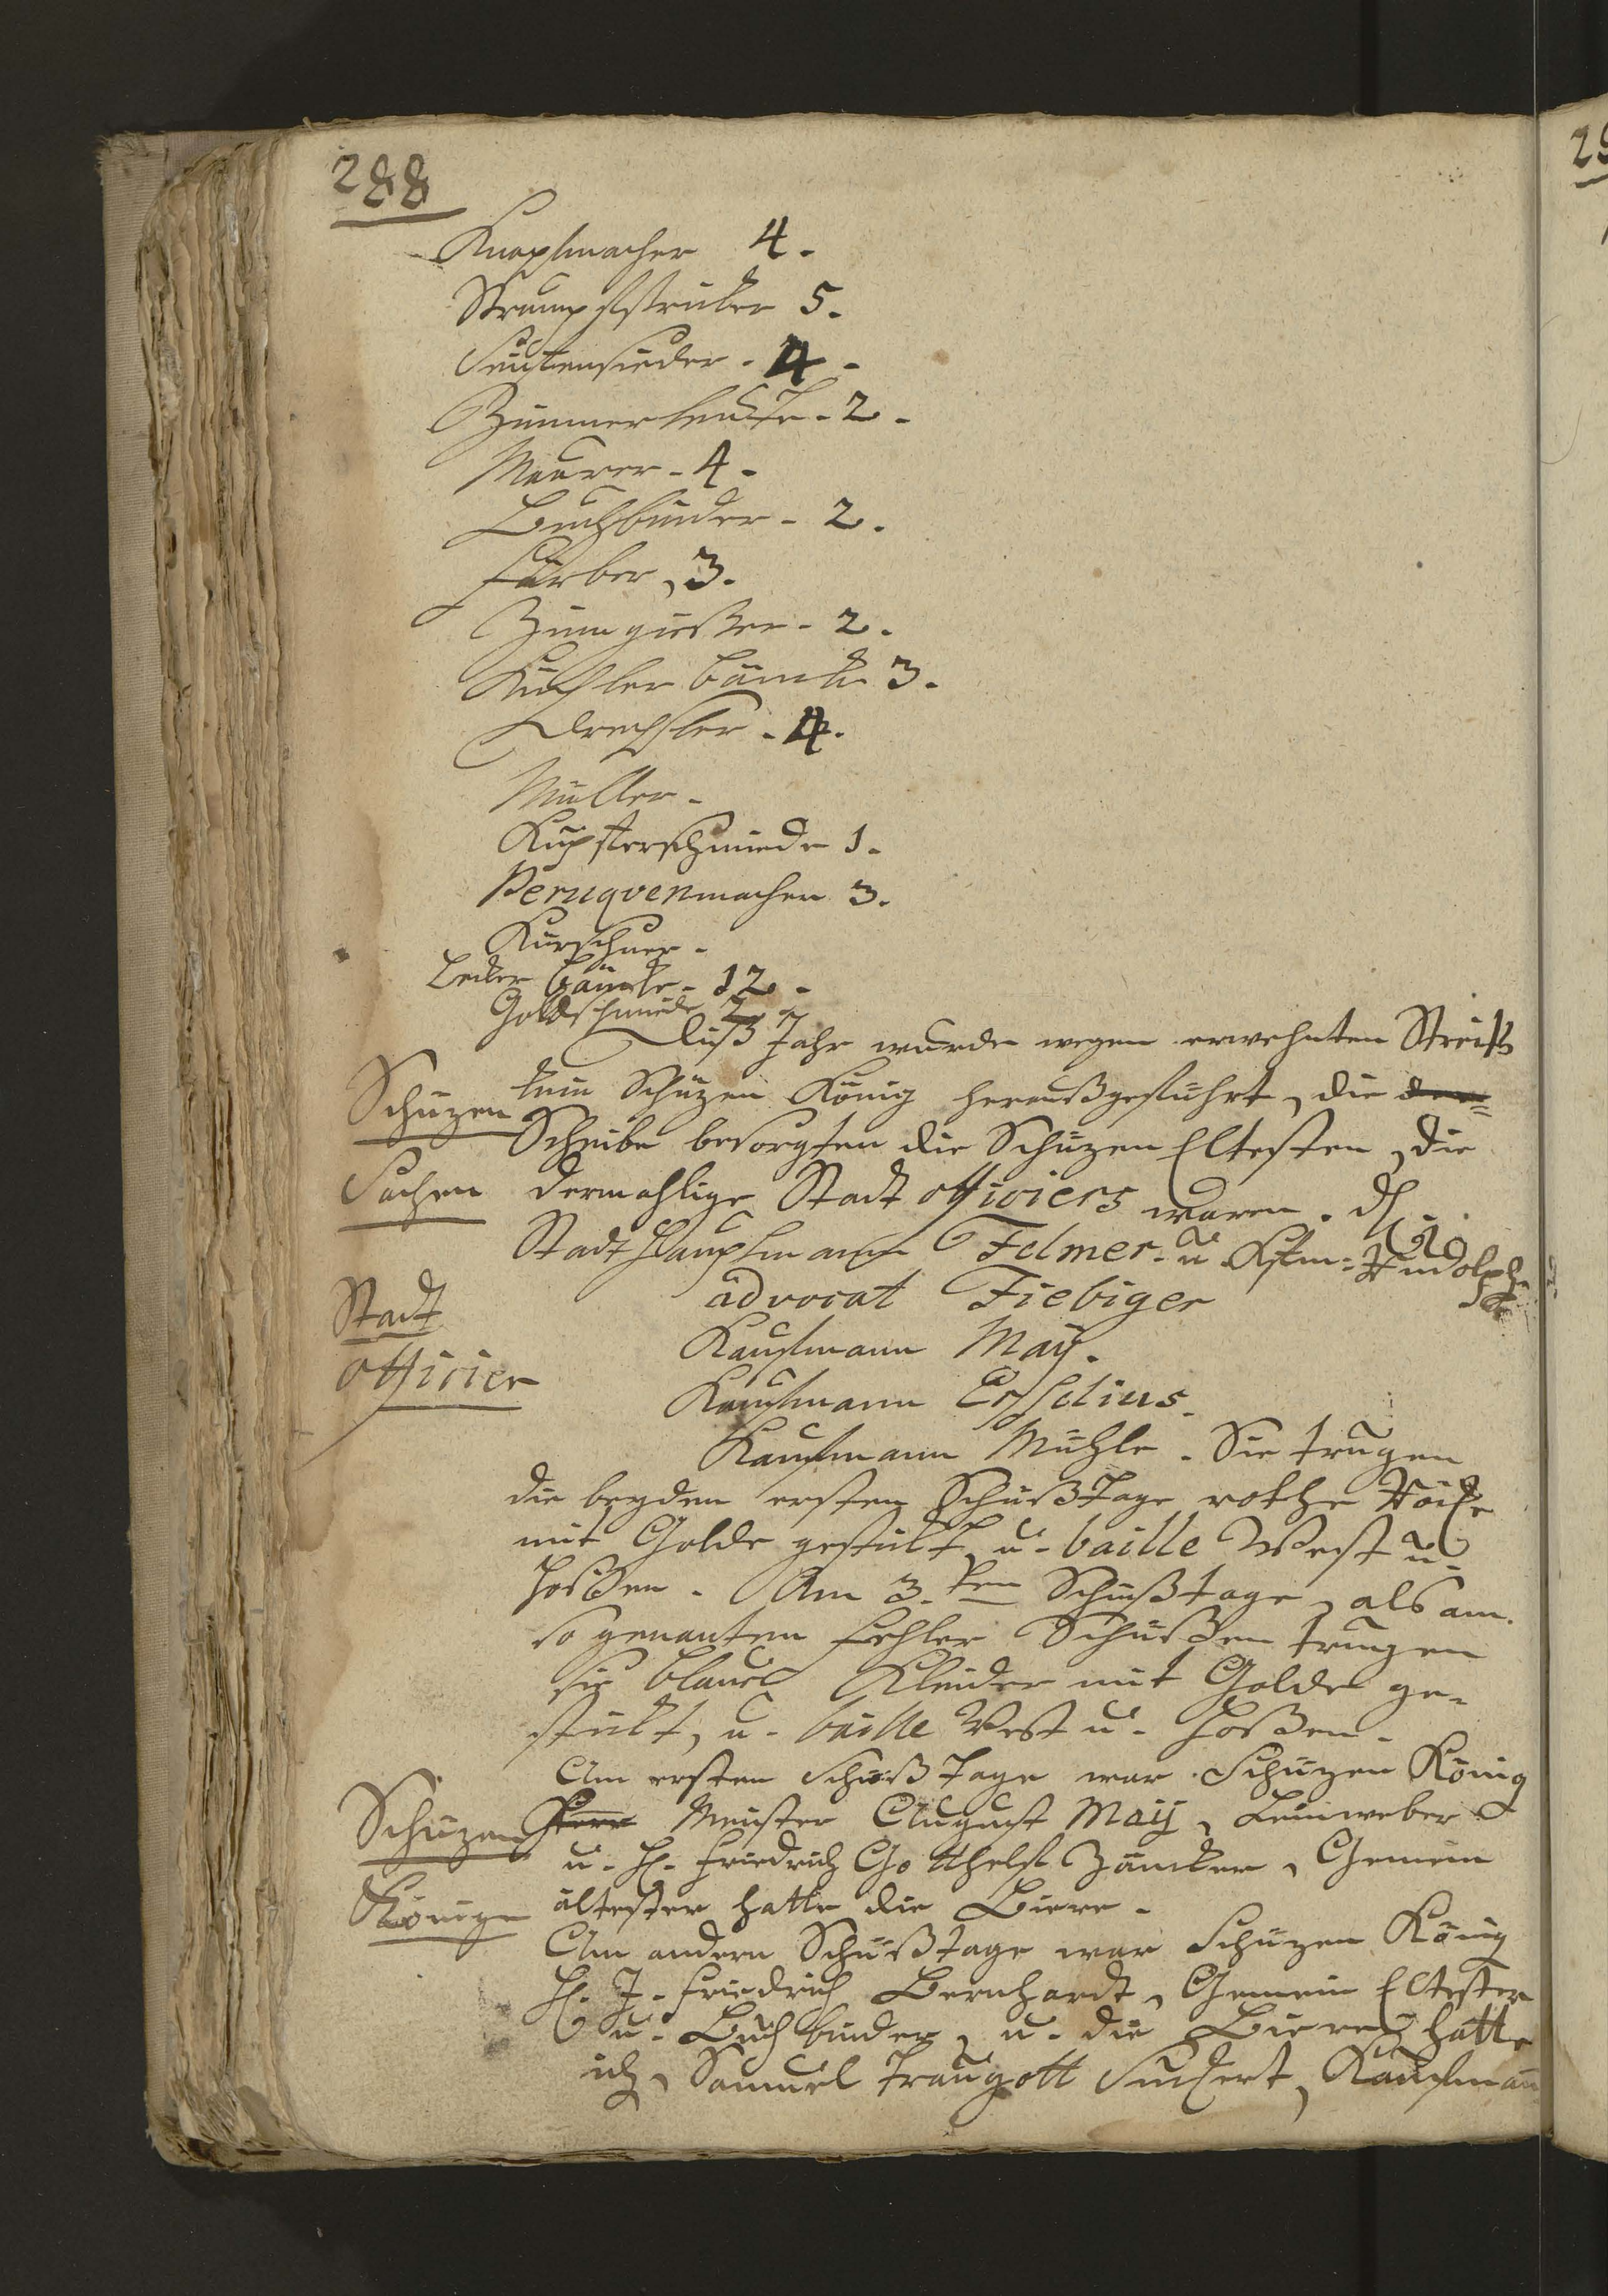 288
Knopfmacher 4.
Strumpfstriker 5.
Seifensieder. 4.
Zimmerleute. 2.
Maurer. 4.
Buchbinder. 2.
Färber, 3.
Zinngießer. 2.
Küchler bänke 3.
Drechsler. 4.
Müller.
Kupferschmiede 1.
Peruqvenmacher 3.
Kürschner.
Beker bänke. 12.
Goldschmiede 2
Dieß Jahr wurde wegen erwehnten Streits
Schüzen
kein Schüzen König heraußgeführt, die
Scheibe besorgten die Schüzen Eltesten, die
Sachen
dermahlige Stadt officiers waren. H.
Stadt Hauptmann Felmer. u. Kfm. Rudolph
advocat Fiebiger
Stadt
Kaufmann May.
officier
Kaufmann Erselius.
Kaufmann Mühle. Sie trugen
die beyden ersten Schießtage rothe Röke
mit Golde gestikt, u. baille West u.
Hosen. Am 3.ten Schießtage, als am
so genanten Fehler Schießen trugen
sie blaue Kleider mit Golde ge-
stikt, u. baille West u. Hoßen.
Am ersten Schießtage war Schüzen König
Schüzen
Meister August Maÿ, Leinweber
u. H. Friedrich Gotthelf Zänker, Gemein
Könige
ältester hatte die Biere.
Am andern Schießtage war Schüzen König
H. J. Friedrich Bernhardt, Gemein Eltester
u. Buchbinder, u. die Biere hatte
ich, Samuel Traugott Suckert, Kaufmañ